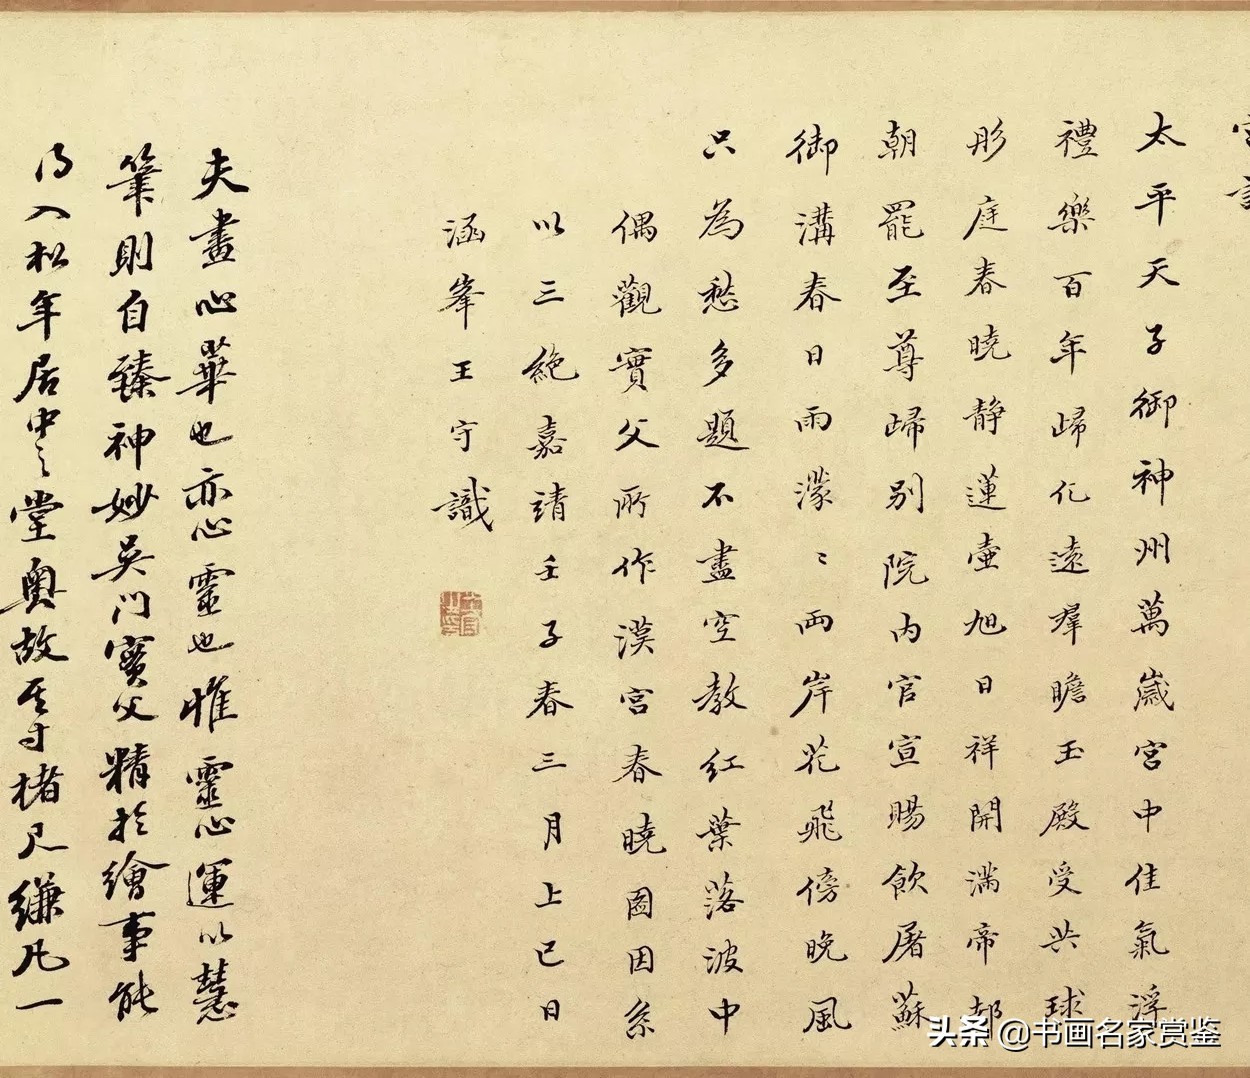 太平天子御神州萬歲宮中佳氣浮
禮樂百年歸化遠群瞻玉殿受共球
彤庭春曉靜蓮壺旭日祥開滿帝都
朝罷至尊歸別院內官宣賜飲屠蘇
御溝春日雨濛〻兩岸花飛傍晚風
只為愁多題不盡空教紅葉落波中
偶觀實父所作漢宮春曉圖因系
以三絕嘉靖壬子春三月上巳日
涵峯王守識
夫畫心華也亦心靈也惟靈心運以慧
筆則自臻神妙吳門實父精於繪事能
得入松年居中之堂奧故其寸楮尺縑凡一
头条 @书画名家赏鉴